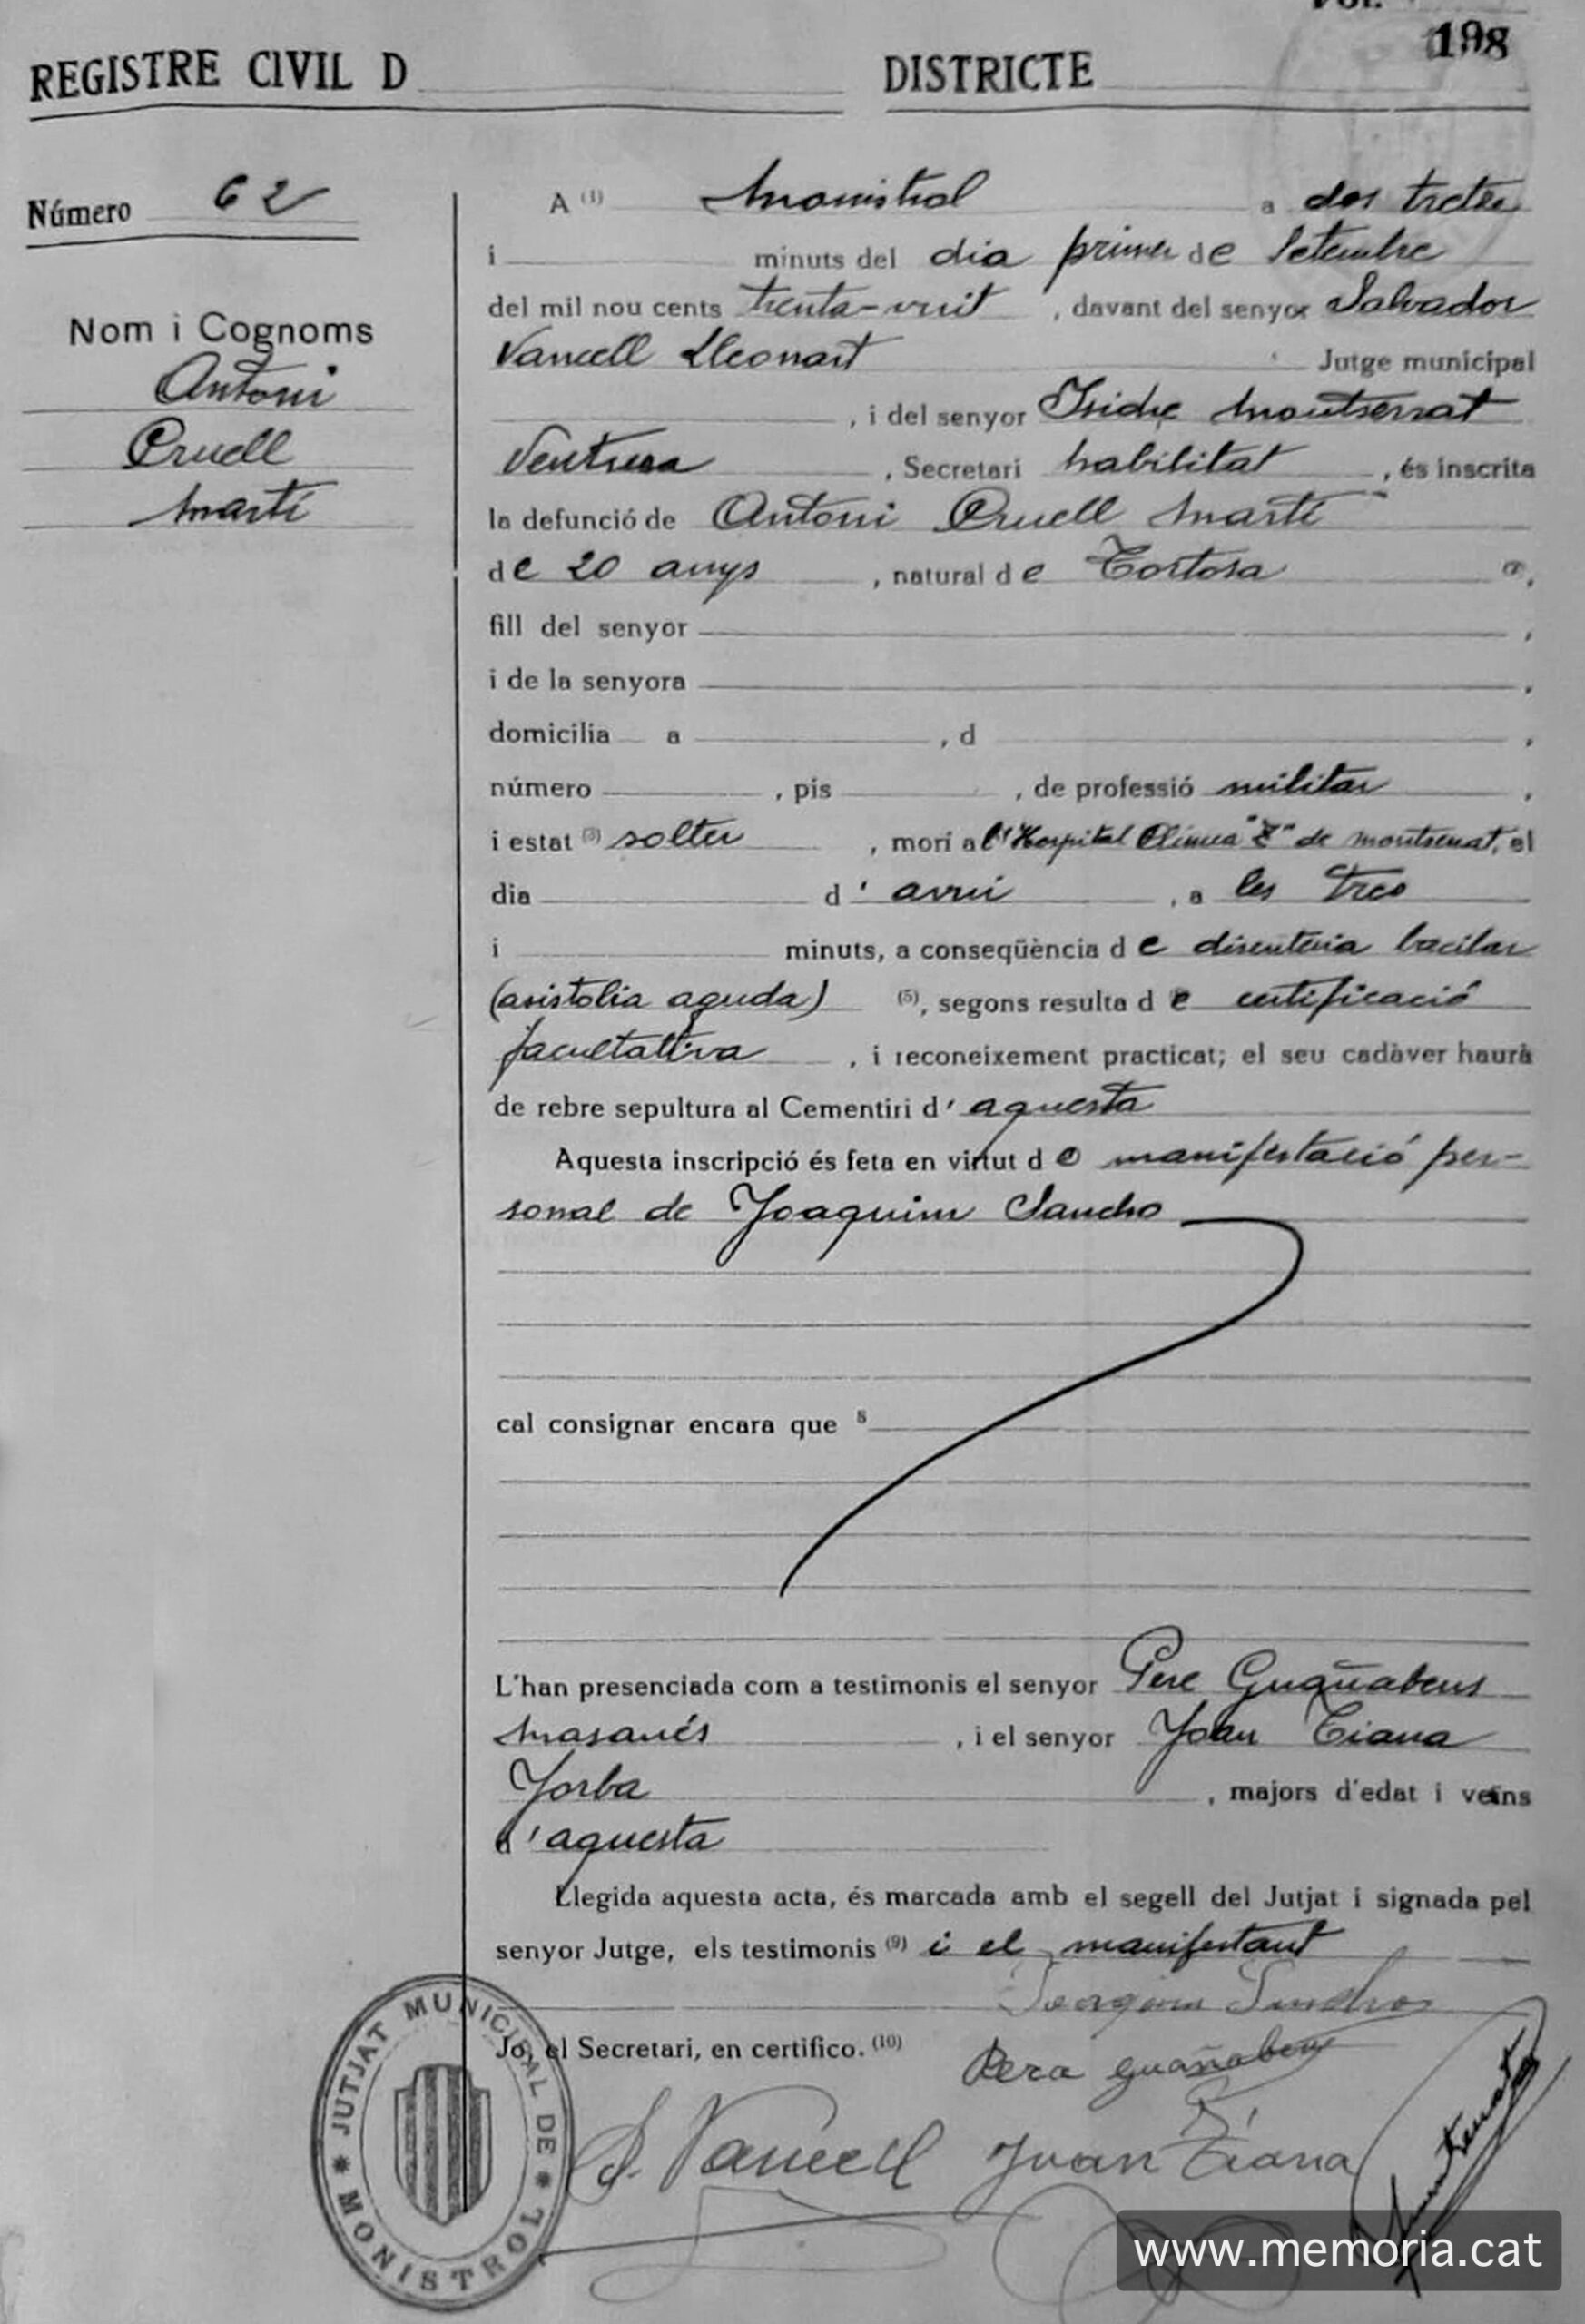 198
REGISTRE CIVIL D DISTRICTE
Número 62
Nom i Cognoms
Antoni
Cruell
Martí
A (1) Monistrol a dos tretze
i minuts del dia primer de Setembre
del mil nou cents trenta-vuit, davant del senyor Salvador
Vancell Lleonart Jutge municipal
, i del senyor Isidre Montserrat
Ventura, Secretari habilitat, és inscrita
la defunció de Antoni Cruell Martí
de 20 anys, natural de Tortosa
fill del senyor ,
i de la senyora ,
domicilia a , d ,
número , pis , de professió militar ,
i estat (3) solter, morí a l'Hospital Clínica "Z" de Montserrat, el
dia d'avui, a les tres
i minuts, a conseqüència de disenteria bacilar
(asistolia aguda) (5), segons resulta de certificació
facultativa, i reconeixement practicat; el seu cadàver haurà
de rebre sepultura al Cementiri d'aquesta
Aquesta inscripció és feta en virtut de manifestació per-
sonal de Joaquim Sancho
cal consignar encara que 8
L'han presenciada com a testimonis el senyor Pere Guañabens
Masanés, i el senyor Joan Tiana
Jorba, majors d'edat i veïns
d'aquesta
Llegida aquesta acta, és marcada amb el segell del Jutjat i signada pel
senyor Jutge, els testimonis (9) i el manifestant
Joaquim Sancho
Jo, el Secretari, en certifico. (10)
Pera Guañabens
S. Vancell Juan Tiana
JUTJAT MUNICIPAL DE MONISTROL
www.memoria.cat